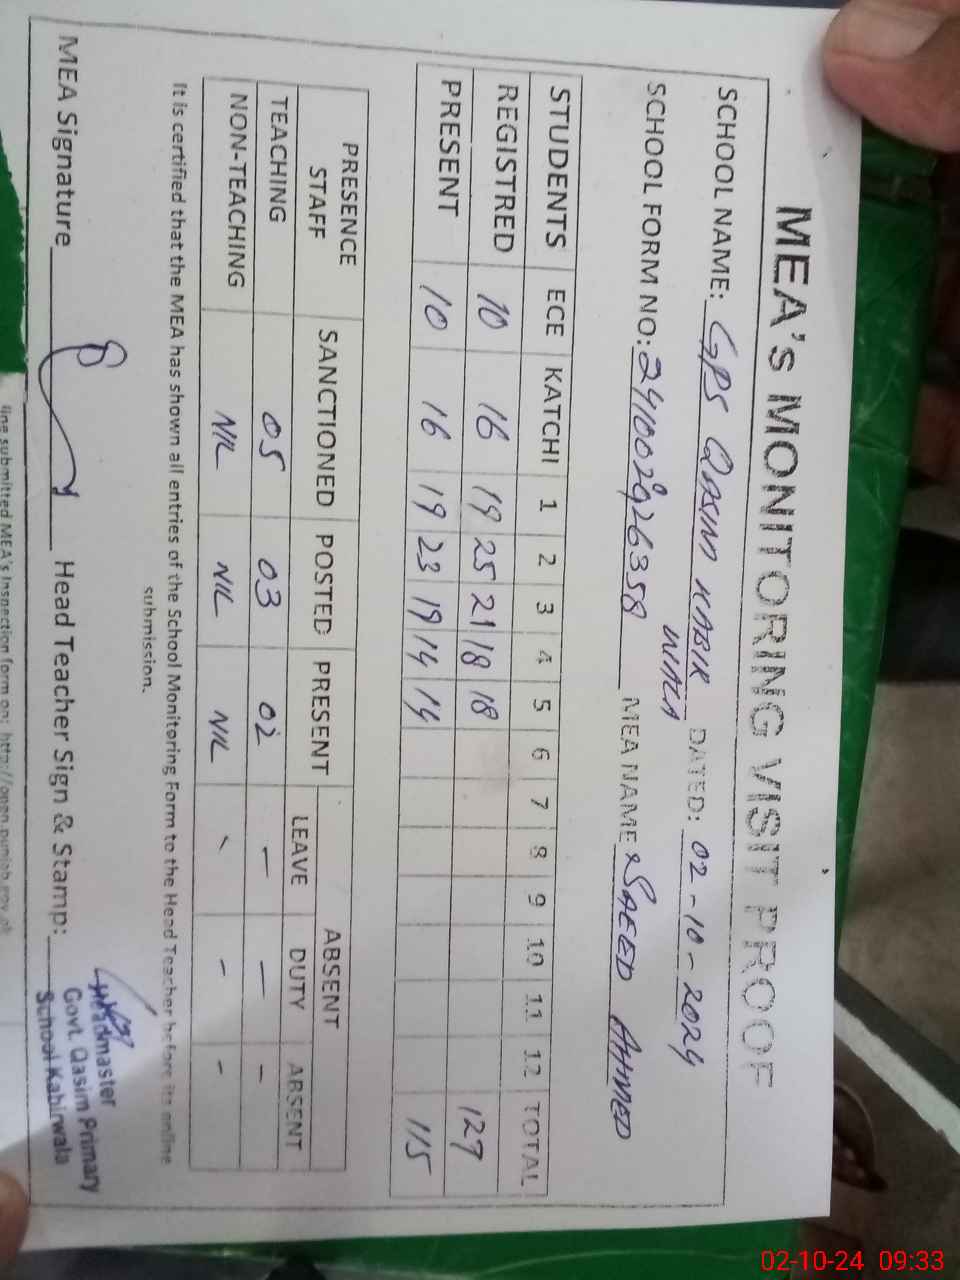 MEA's MONITORING VISIT PROOF
SCHOOL NAME: GPS QASIM KABIR WALA DATED: 02-10-2024
SCHOOL FORM NO: 241002926358 MEA NAME SAEED AHMED
STUDENTS ECE KATCHI 1 2 3 4 5 6 7 8 9 10 11 12 TOTAL
REGISTRED 10 16 19 25 21 18 18 127
PRESENT 10 16 19 23 19 14 14 115
PRESENCE STAFF SANCTIONED POSTED PRESENT ABSENT
LEAVE DUTY ABSENT
TEACHING 05 03 02 - - -
NON-TEACHING NIL NIL NIL - - -
It is certified that the MEA has shown all entries of the School Monitoring Form to the Head Teacher before its online
submission.
MEA Signature Head Teacher Sign & Stamp:
Headmaster
Govt. Qasim Primary
School Kabirwala
line submitted MEA's Inspection form on: http://open.punjab.gov.pk
02-10-24 09:33